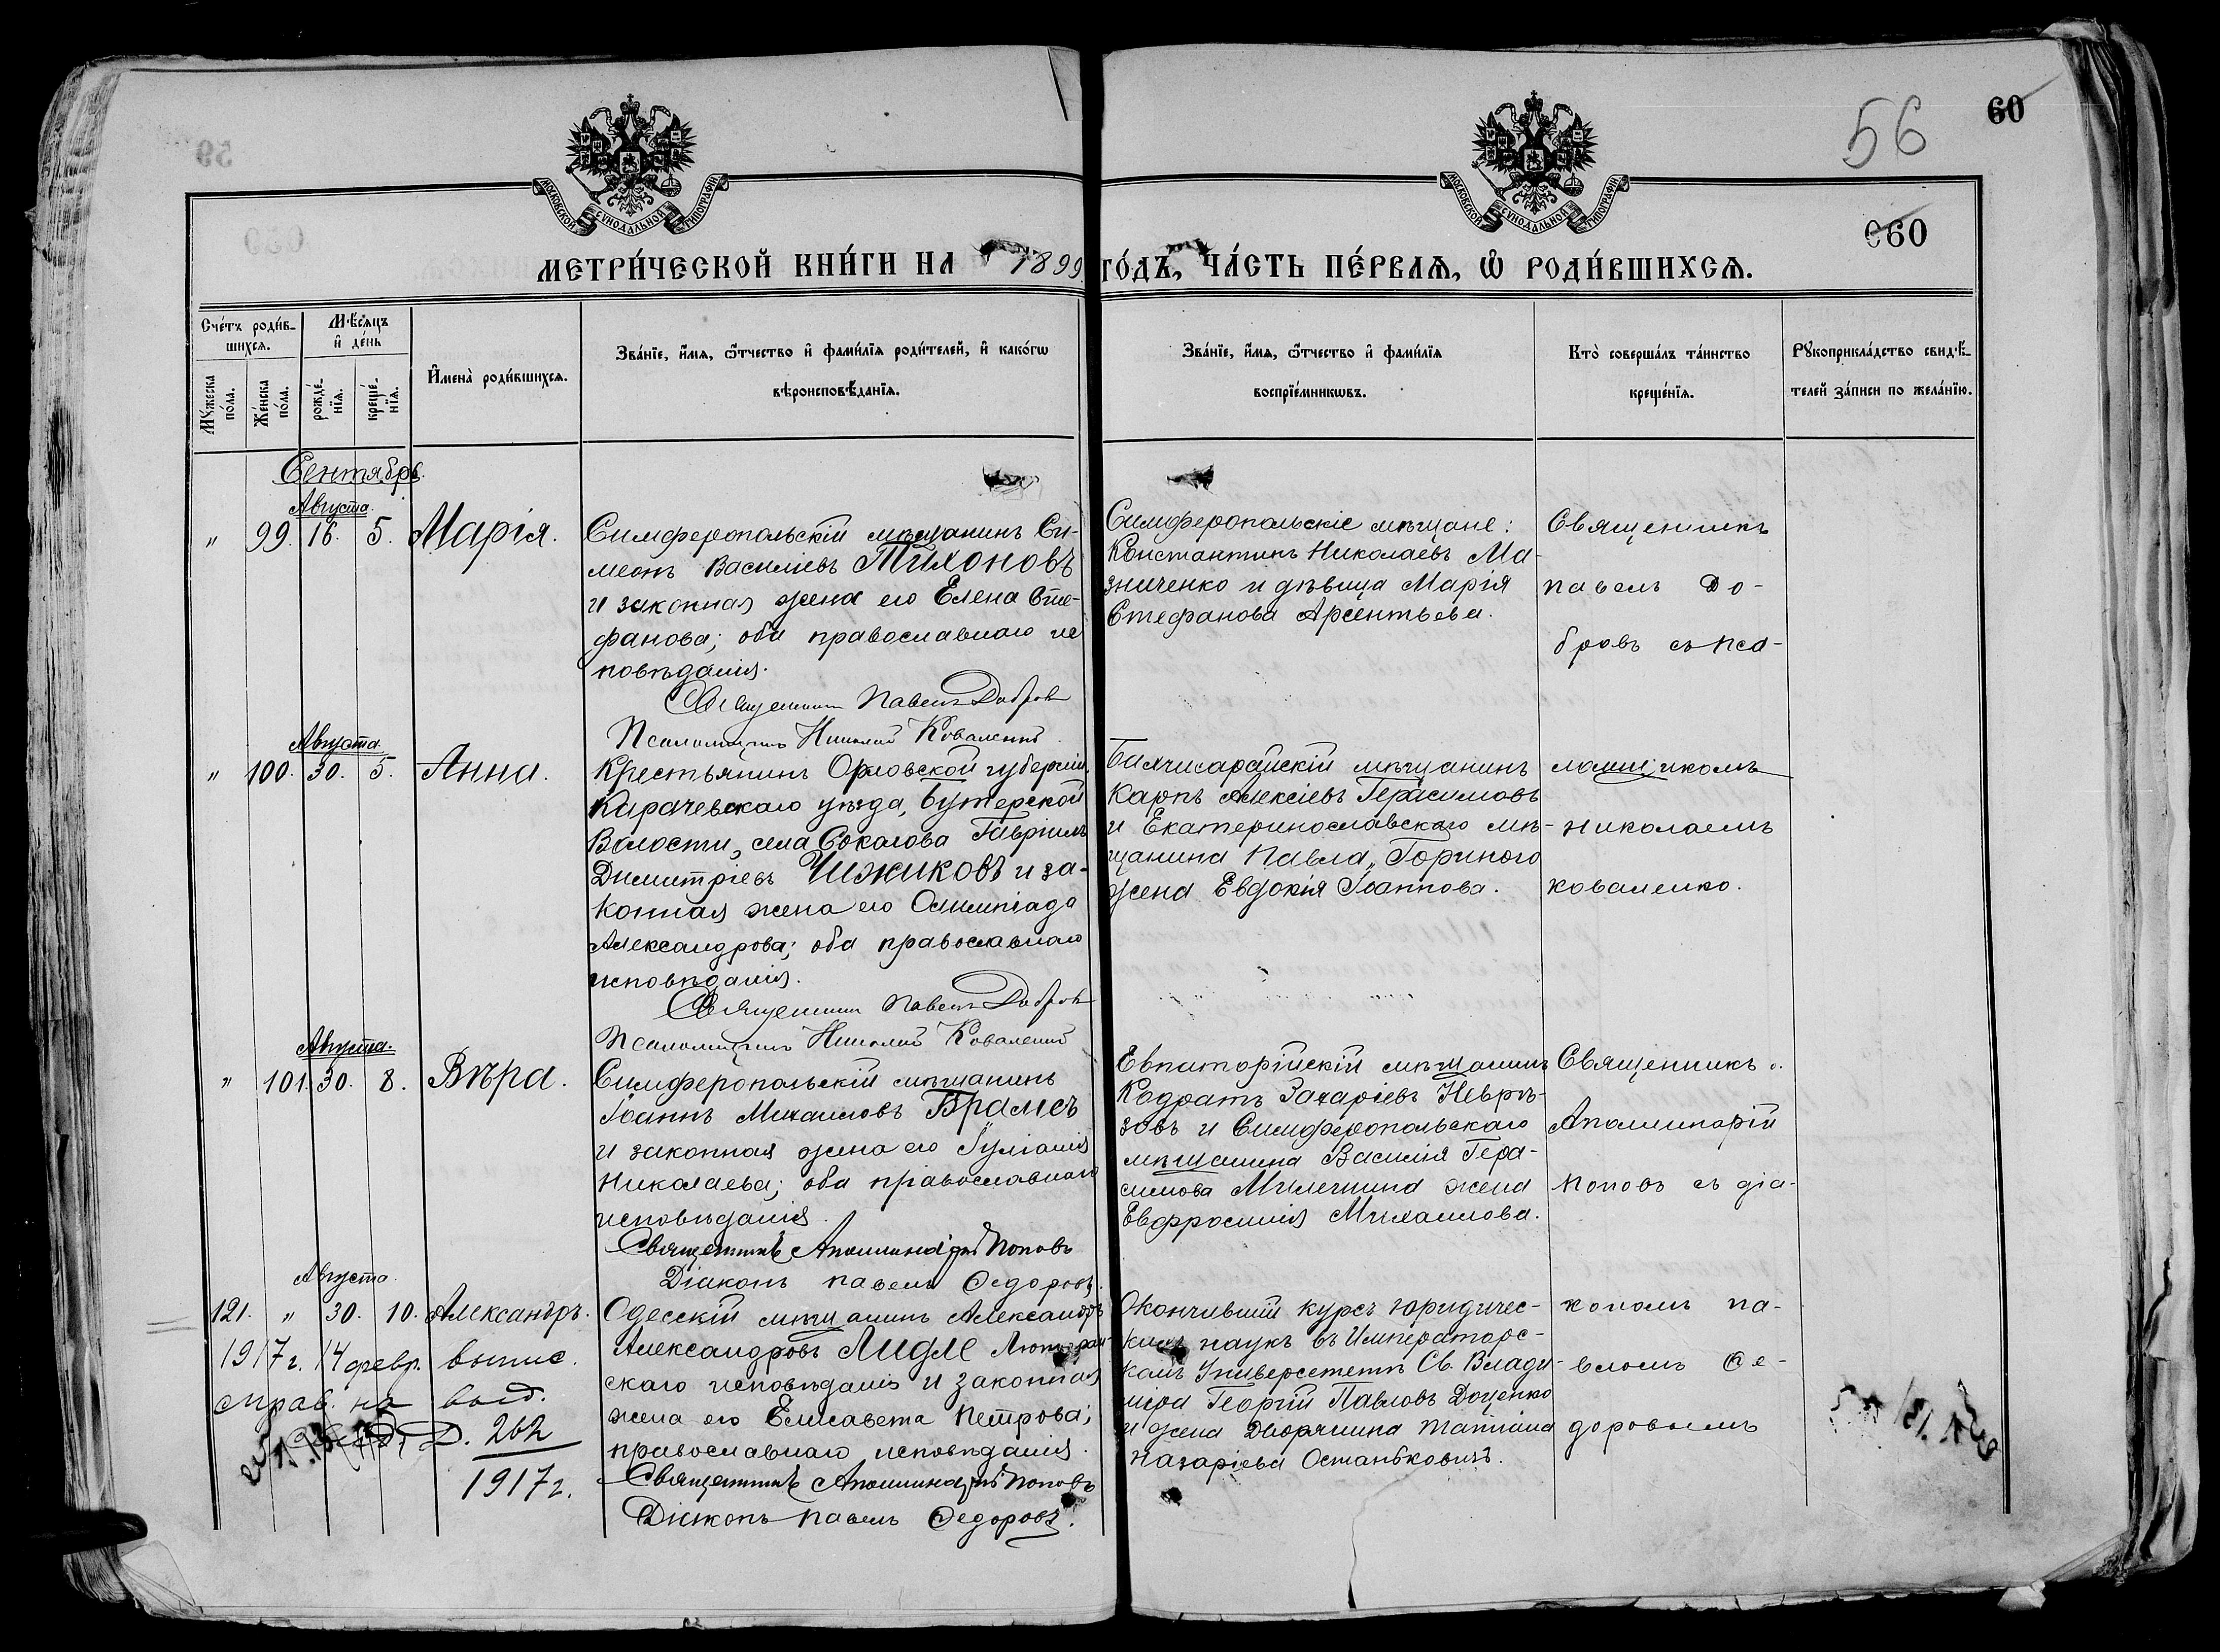 56
60
МОСКОВСКОЙ СѴНОДАЛЬНОЙ ТИПОГРАФІИ
МОСКОВСКОЙ СѴНОДАЛЬНОЙ ТИПОГРАФІИ
660
МЕТРИ́ЧЕСКОЙ КНИ́ГИ НА 1899 ГО́ДЪ, ЧА́СТЬ ПЕ́РВАѦ, Ѡ҆ РОДИ́ВШИХСѦ.
Сче́тъ роди́в-
шихсѧ.
Мꙋ́жеска по́ла.
Же́нска по́ла.
Мѣ́сѧцъ и҆ де́нь
рожде́-нїѧ.
креще́-нїѧ.
И҆мена̀ роди́вшихсѧ.
Зва́нїе, и҆́мѧ, ѻ҆́тчество и҆ фами́лїѧ роди́телей, и҆ како́гѡ
вѣроисповѣ́данїѧ.
Зва́нїе, и҆́мѧ, ѻ҆́тчество и҆ фами́лїѧ
воспрїе́мникѡвъ.
Кто̀ соверша́лъ та́инство
креще́нїѧ.
Рꙋкоприкла́дство свидѣ́-
телей за́писи по жела́нїю.
Сентябрь.
Августа.
" 99. 16. 5. Марія.
Симферопольскій мѣщанинъ Си-
меонъ Василіевъ Тихоновъ
и законная жена его Елена Сте-
фанова; оба православнаго ис
повѣданія.
Священникъ Павелъ Добровъ
Псаломщикъ Николай Коваленко
Симферопольскіе мѣщане:
Константинъ Николаевъ Ма-
зниченко и дѣвица Марія
Стефанова Арсентьева.
Священникъ
Павелъ До-
бровъ съ пса-
Августа
" 100. 30. 5. Анна.
Крестьянинъ Орловской губерніи,
Карачевскаго уѣзда, Бутерской
Волости, села Соколова Гавріилъ
Димитріевъ Чижиковъ и за-
конная жена его Олимпіада
Александрова; оба православнаго
исповѣданія.
Священникъ Павелъ Добровъ
Псаломщикъ Николай Коваленко
Бахчисарайскій мѣщанинъ
Карпъ Алексіевъ Герасимовъ
и Екатеринославскаго мѣ-
щанина Павла Горпного
жена Евдокія Іоаннова.
ломщикомъ
Николаемъ
Коваленко.
Августа.
" 101. 30. 8. Вѣра.
Симферопольскій мѣщанинъ
Іоаннъ Михаиловъ Брамсъ
и законная жена его Іуліанія
Николаева; оба православнаго
исповѣданія.
Священникъ Аполлинарій Поповъ
Діаконъ Павелъ Федоровъ.
Евпаторійскій мѣщанинъ
Кодратъ Захаріевъ Невръ-
зовъ и Симферопольскаго
мѣщанина Василія Гера-
симова Милечкина жена
Евфросинія Михаилова.
Священникъ
Аполлинарій
Поповъ съ діа-
Августа.
121. " 30. 10. Александръ.
Одесскій мѣщанинъ Александръ
Александровъ Лидле Лютеран
скаго исповѣданія и законная
жена его Елисавета Петрова;
православнаго исповѣданія.
Священникъ Аполлинарій Поповъ
Діаконъ Павелъ Федоровъ.
Окончившій курсъ юридичес-
кихъ наукъ въ Императорс-
комъ Университетѣ Св. Влади-
міра Георгій Павловъ Доценко
и жена Дворянина Татіана
Назаріева Останковичъ.
кономъ Па-
вломъ Фе-
доровымъ
1917 г. 14 февр. выпис.
справ. на выд.
Д. 262
1917 г.